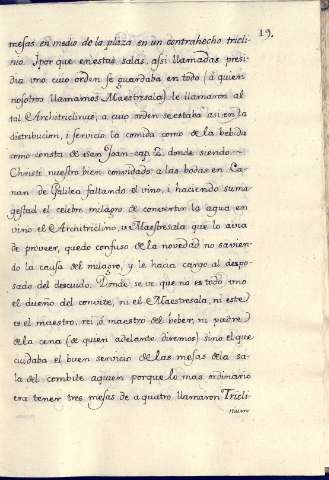 19.
mesas en medio de la plaza en un contrahecho tricli-
nio. Y por que en estas salas, assi llamadas presi-
dia uno cuio orden se guardaba en todo (a quien
nosotros llamamos Maestresala) le llamaron al
tal Architriclinus, a cuio orden se estaba asi en la
distribucion, i servicio la comida como de la bebida
como consta de San Joan cap. 2. donde siendo
Christo nuestro bien convidado a las bodas en Ca-
nan de Galilea faltando el vino, i haciendo su ma-
gestad el celebre milagro de convertir la agua en
vino el Architriclino, u Maestresala que lo avia
de proveer, quedo confuso de la novedad no savien-
do la causa del milagro, y le hacia cargo al despo-
sado del descuido. Donde se ve que no es todo uno
el dueño del convite, ni el Maestresala, ni este
es el maestro, rei, o maestro del beber, ni padre
de la cena (de quien adelante diremos) sino el que
cuidaba el buen servicio de las mesas de la sa-
la del combite a quien porque lo mas ordinario
era tener tres mesas de a quatro llamaron Tricli-